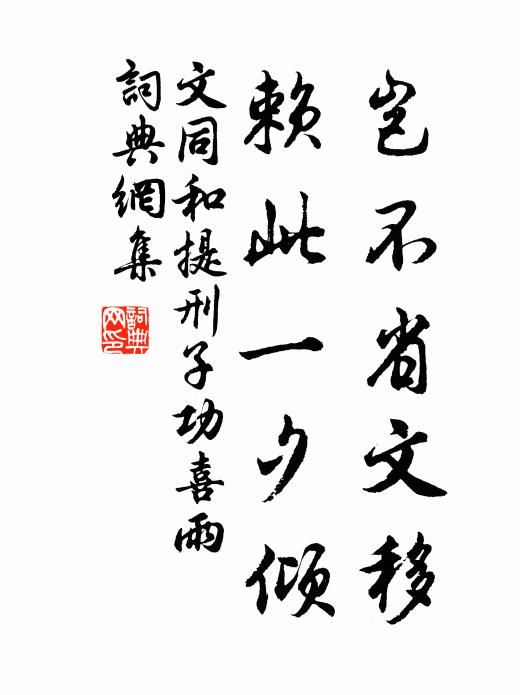 豈不省文移
賴此一夕傾
文同和提刑子功喜雨
詞典網集
詞典
网印